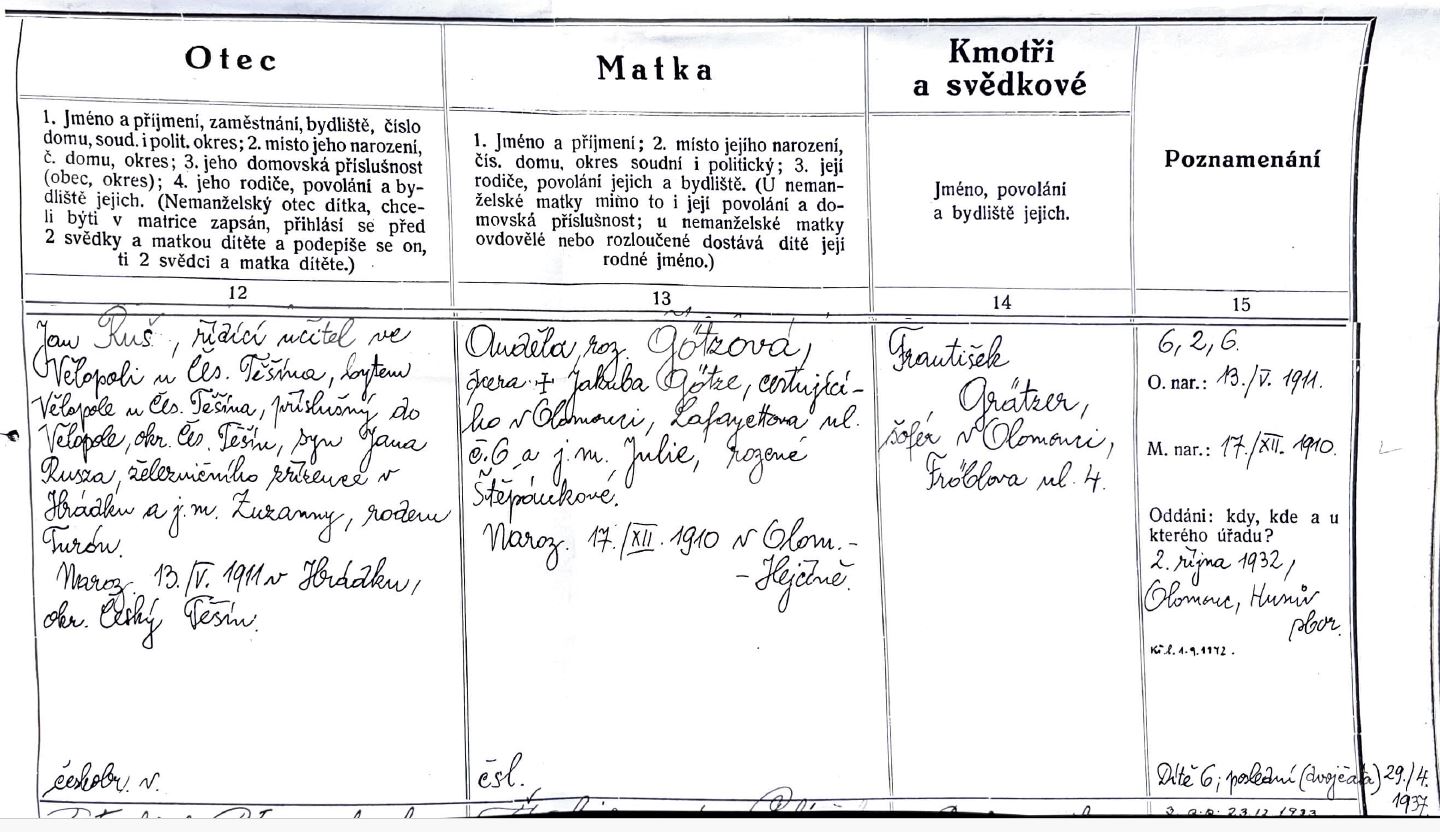 Otec
1. Jméno a příjmení, zaměstnání, bydliště, číslo
domu, soud. i polit. okres; 2. místo jeho narození,
č. domu, okres; 3. jeho domovská příslušnost
(obec, okres); 4. jeho rodiče, povolání a by-
dliště jejich. (Nemanželský otec dítka, chce-
li býti v matrice zapsán, přihlásí se před
2 svědky a matkou dítěte a podepíše se on,
ti 2 svědci a matka dítěte.)
12
Jan Ruš, řídící učitel ve
Vělopoli u Čes. Těšína, bytem
Vělopole u Čes. Těšína, příslušný do
Vělopole, okr. Čes. Těšín, syn Jana
Rusza, železničního zřízence v
Hrádku a j. m. Zuzanny, rodem
Turoń.
Naroz. 13./V. 1911 v Hrádku,
okr. Český Těšín.
českobr. v.
Matka
1. Jméno a příjmení; 2. místo jejího narození,
čís. domu, okres soudní i politický; 3. její
rodiče, povolání jejich a bydliště. (U neman-
želské matky mimo to i její povolání a do-
movská příslušnost; u nemanželské matky
ovdovělé nebo rozloučené dostává dítě její
rodné jméno.)
13
Anděla, roz. Götzová,
dcera + Jakuba Götze, cestující-
ho v Olomouci, Lafayettova ul.
č. 6 a j. m. Julie, rozené
Štěpánkové.
Naroz. 17./XII. 1910 v Olom.-
- Hejčíně.
čsl.
Kmotři
a svědkové
Jméno, povolání
a bydliště jejich.
14
František
Grätzer,
šofér v Olomouci,
Fröblova ul. 4.
Poznamenání
15
6, 2, 6.
O. nar.: 13./V. 1911.
M. nar.: 17./XII. 1910.
Oddáni: kdy, kde a u
kterého úřadu?
2. října 1932,
Olomouc, Husův
sbor.
1.9.1972.
Dítě 6; poslední (dvojčata) 29./4.
1937.